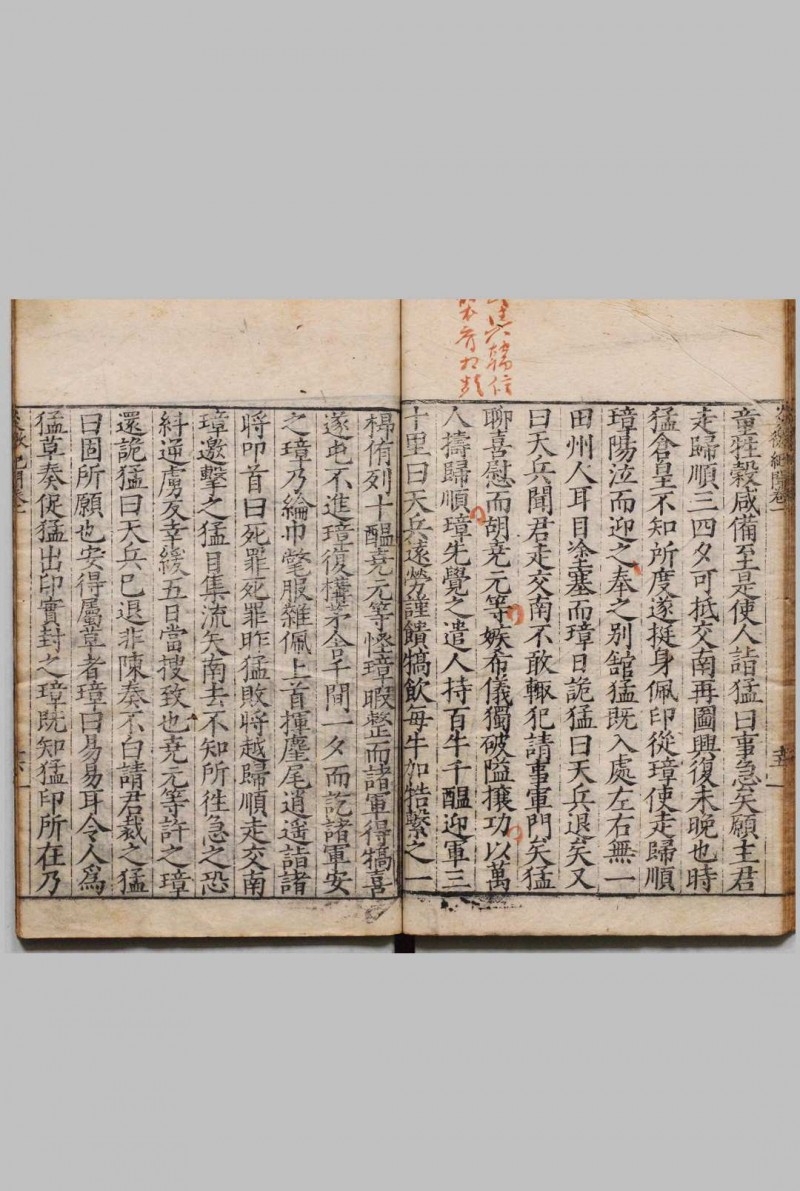 童牲穀咸備至是使人詣猛曰事急矣願主君
走歸順三四夕可抵交南再圖興復未晚也時
猛倉皇不知所度遂挺身佩印從璋使走歸順
璋陽泣而迎之奉之别舘猛既入處左右無一
田州人耳目塗塞而璋日詭猛曰天兵退矣又
曰天兵聞君走交南不敢輒犯請事軍門矣猛
聊喜慰而胡堯元等嫉希儀獨破隘攘功以萬
人擣歸順璋先覺之遣人持百牛千醖迎軍三
十里曰天兵遠勞謹饋犒飲每牛加牿繫之一
楊侑列十醖堯元等恠璋暇整而諸軍得犒喜
遂屯不進璋復構茅舍千間一夕而訖諸軍安
之璋乃綸巾氅服雜佩上首揮麈尾逍遥詣諸
將叩首曰死罪死罪昨猛敗將越歸順走交南
璋邀擊之猛目集流矢南去不知所徃急之恐
糾逆虜友幸緩五日當搜致也堯元等許之璋
還詭猛曰天兵已退非陳奏不白請君裁之猛
曰固所願也安得屬草者璋曰易易耳令人爲
猛草奏促猛出印實封之璋既知猛印所在乃